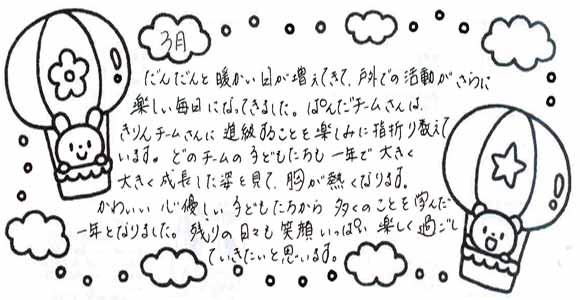 3月
だんだんと暖かい日が増えてきて、戸外での活動がさらに
楽しい毎日になってきました。ぱんだチームさんは、
きりんチームさんに進級することを楽しみに指折り数えて
います。どのチームの子どもたちも一年で大きく
大きく成長した姿を見て、胸が熱くなります。
かわいい心優しい子どもたちから多くのことを学んだ
一年となりました。残りの日々も笑顔いっぱい楽しく過ごし
ていきたいと思います。